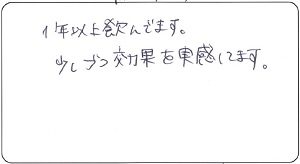 1年以上飲んでます。
少しづつ効果を実感してます。